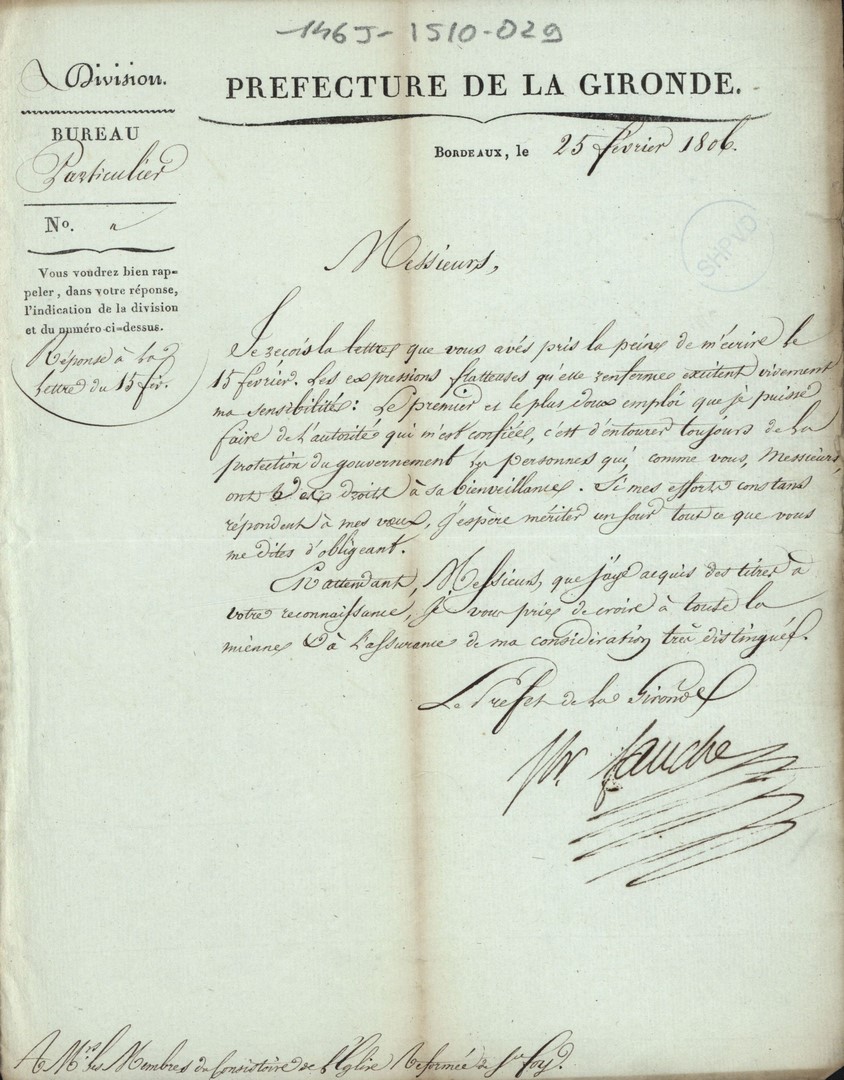 146J-1510-029
Division.
PREFECTURE DE LA GIRONDE.
BUREAU
Particulier
BORDEAUX, le 25 février 1806.
No. "
SHPVD
Vous voudrez bien rap=
peler, dans votre réponse,
l'indication de la division
et du numéro ci=dessus.
Réponse à la
lettre du 15 fév.
Messieurs,
Je reçois la lettre que vous avés pris la peine de m'écrire le
15 février. Les expressions flatteuses qu'elle renferme excitent vivement
ma sensibilité: Le premier et le plus doux emploi que je puisse
faire de l'autorité qui m'est confiée, c'est d'entourer toujours de la
protection du gouvernement les personnes qui, comme vous, Messieurs,
ont des droits à sa bienveillance. Si mes efforts constans
répondent à mes vœux, j'espère mériter un jour tout ce que vous
me dites d'obligeant.
En attendant, Messieurs, que j'aye acquis des titres à
votre reconnaissance, je vous prie de croire à toute la
mienne & à l'assurance de ma considération très distinguée.
Le Préfet de la Gironde
fauche
A Mrs les Membres du Consistoire de l'Eglise Reformée de Ste foy.